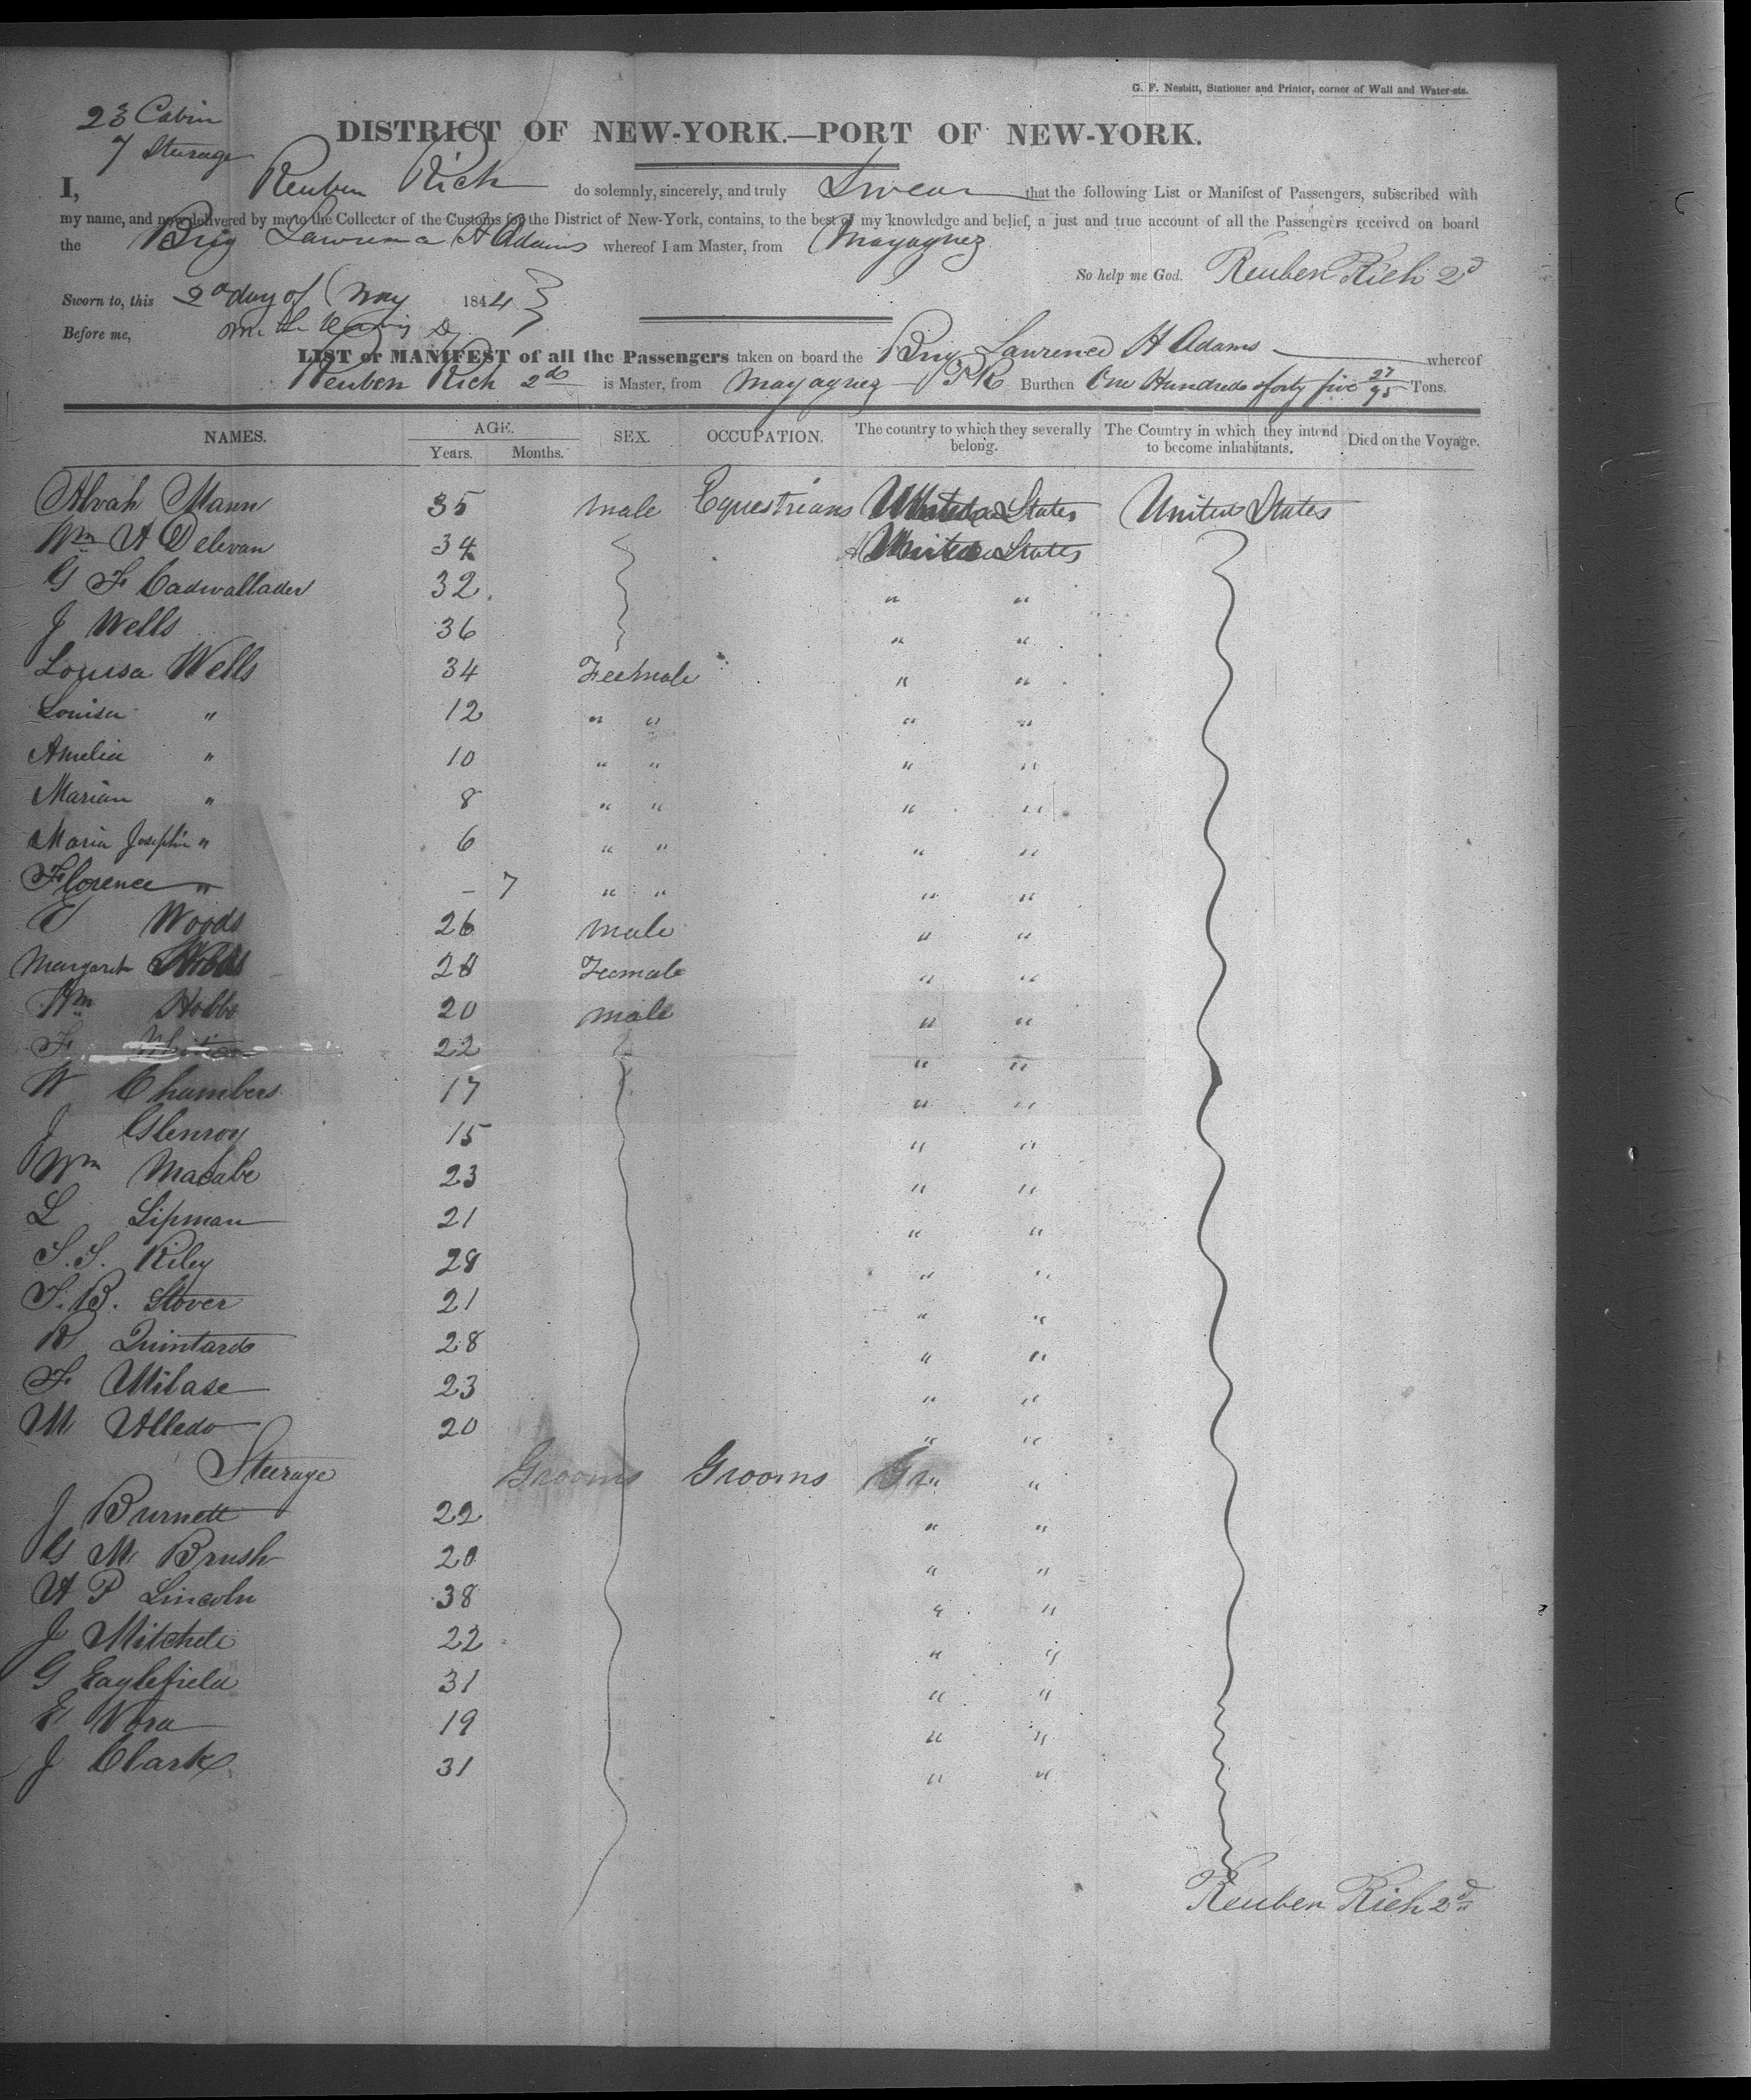 G. F. Nesbitt, Stationer and Printer, corner of Wall and Water-sts.
23 Cabin
7 Sturage
DISTRICT OF NEW-YORK.—PORT OF NEW-YORK.
I, Reuben Rich do solemnly, sincerely, and truly Swear that the following List or Manifest of Passengers, subscribed with
my name, and now delivered by me to the Collector of the Customs for the District of New-York, contains, to the best of my knowledge and belief, a just and true account of all the Passengers received on board
the Brig Lawrence H Adams whereof I am Master, from Mayaguez
So help me God. Reuben Rich 2d
Sworn to, this 2d day of May 1844
Before me,
LIST or MANIFEST of all the Passengers taken on board the Brig Lawrence H Adams whereof
Reuben Rich 2d is Master, from Mayaguez PR Burthen One Hundred & forty five 27/95 Tons.
NAMES. AGE. Years. Months. SEX. OCCUPATION. The country to which they severally belong. The Country in which they intend to become inhabitants. Died on the Voyage.
Alvah Mann 35 male Equestrians United States United States
Wm A Delevan 34 United States
G F Cadwallader 32 " "
J Wells 36 " "
Louisa Wells 34 Feemale " "
Louisa " 12 " " " "
Amelia " 10 " " " "
Marian " 8 " " " "
Maria Josephin " 6 " " " "
Florence " – 7 " " " "
E Woods 26 male " "
Margaret Hobbs 28 Feemale " "
Wm Hobbs 20 male " "
F 22 " "
W Chambers 17 " "
J Glenroy 15 " "
Wm Macabe 23 " "
L Lipman 21 " "
S. S. Riley 28 " "
F. B. Stover 21 " "
R Quintard 28 " "
F Milase 23 " "
M Alledo 20 " "
Steerage Grooms Grooms Gr " "
J Burnett 22 " "
G M Brush 20 " "
A P Lincoln 38 " "
J Mitchele 22 " "
G Eaglefield 31 " "
E Nora 19 " "
J Clark 31 " "
Reuben Rich 2d